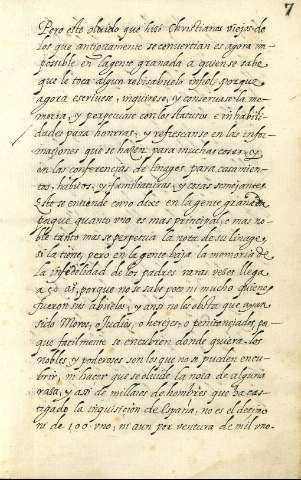 7
Pero esto olvido que hizo Christianos viejos de
los que antiguamente se convertian es agora im-
posible en la gente granada a quien se sabe
que le toca algun rebisabuelo infiel porque
agora escrivese, inquirese, y conservase la me-
moria, y perpetuase con los statutos e inhabili-
dades para honrras, y refrescanse en las infor-
maçiones que se hazen para muchas cosas, y
en las conferencias de linages para casamien-
tos, habitos, y familiaturas, y cosas semejantes
Esto se entiende como dixe en la gente granada
porque quanto uno es mas principal, o mas no-
ble tanto mas se perpetua la nota de su linage,
si la tiene, pero en la gente baja la memoria de
la infidelidad de los padres raras vezes llega
a 50 años, porque no se sabe poco ni mucho quienes
fueron sus abuelos, y ansi no les obsta que ayan
sido Moros, o Judios, o herejes, o penitençiados, por
que facilmente se encubren donde quiera. los
nobles, y poderosos son los que no se pueden encu-
brir, ni hacer que se olvide la nota de alguna
raça, y assi de millares de hombres que ha cas-
tigado la inquisicion de España, no es el decimo
ni de 100 uno, ni aun por ventura de mil uno.